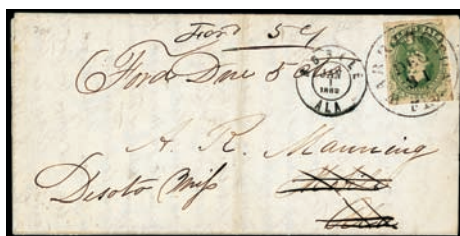 Ford 5 ¢
Ford Due 5 Cts
MOBILE
JAN
1
1862
ALA
A. R. Manning
Desoto Miss
Mobile
Ala